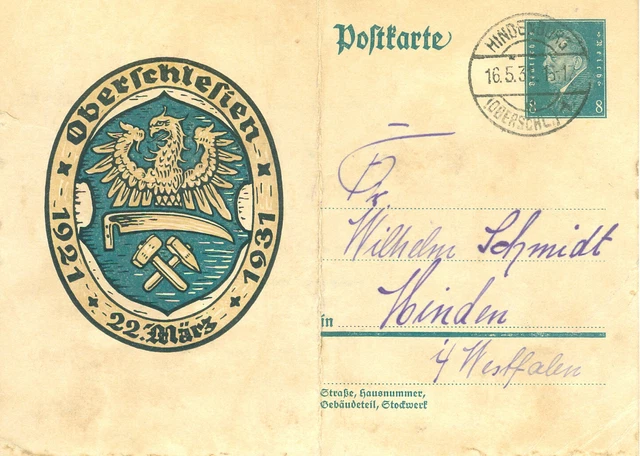 Postkarte
HINDENBURG
16.5.3
(OBERSCHL.)
8 8
Oberschlesien
1921 1931
22. März
Wilhelm Schmidt
in Minden
i/ Westfalen
Straße, Hausnummer,
Gebäudeteil, Stockwerk